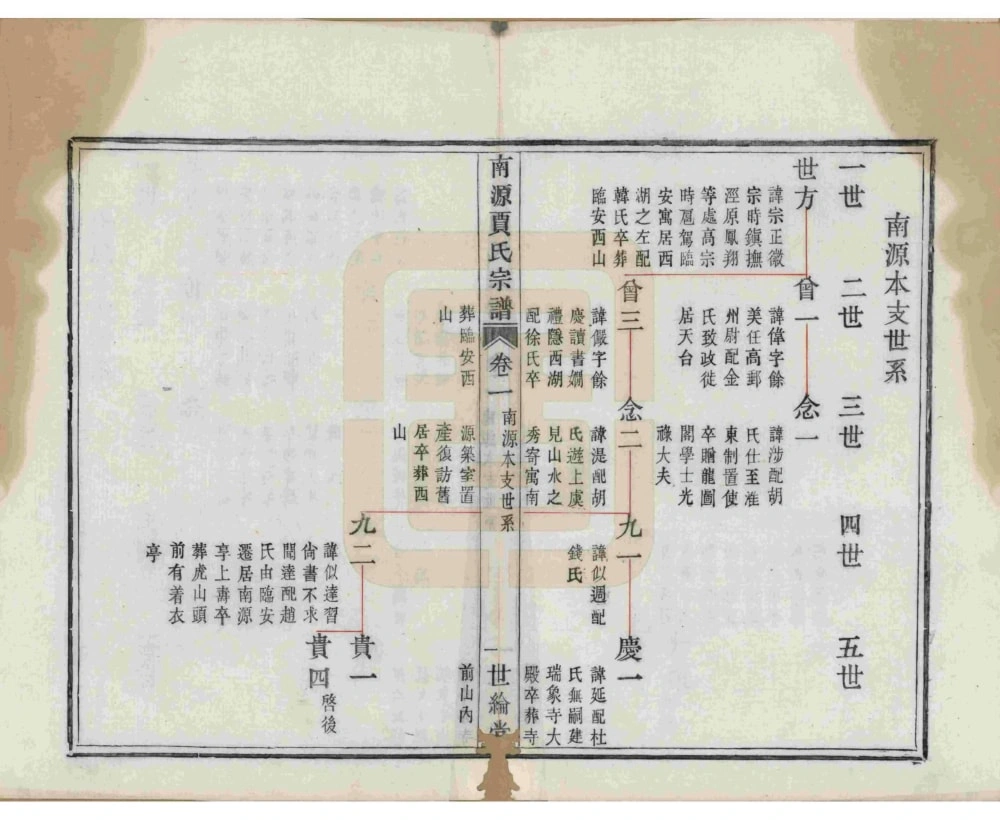 南源本支世系
一世
二世
三世
四世
五世
世方
諱宗正徽
宗時鎭撫
涇原鳳翔
等處高宗
時扈駕臨
安寓居西
湖之左配
韓氏卒葬
臨安西山
曾一
諱偉字餘
美任高郵
州尉配金
氏致政徙
居天台
念一
諱涉配胡
氏仕至淮
東制置使
卒贈龍圖
閣學士光
祿大夫
曾三
諱儼字餘
慶讀書嫺
禮隱西湖
配徐氏卒
葬臨安西
山
念二
諱湜配胡
氏遊上虞
見山水之
秀寄寓南
源築室置
產復訪舊
居卒葬西
山
九一
諱似週配
錢氏
慶一
諱延配杜
氏無嗣建
瑞象寺大
殿卒葬寺
前山內
南源賈氏宗譜
卷一
南源本支世系
一
世綸堂
九二
諱似達習
尙書不求
聞達配趙
氏由臨安
遷居南源
享上壽卒
葬虎山頭
前有着衣
亭
貴一
貴四
啓後